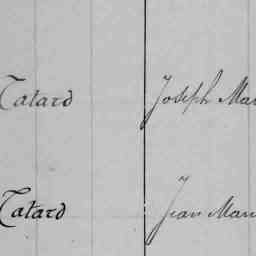 Tatard Joseph Mar
Tatard Jean Mari